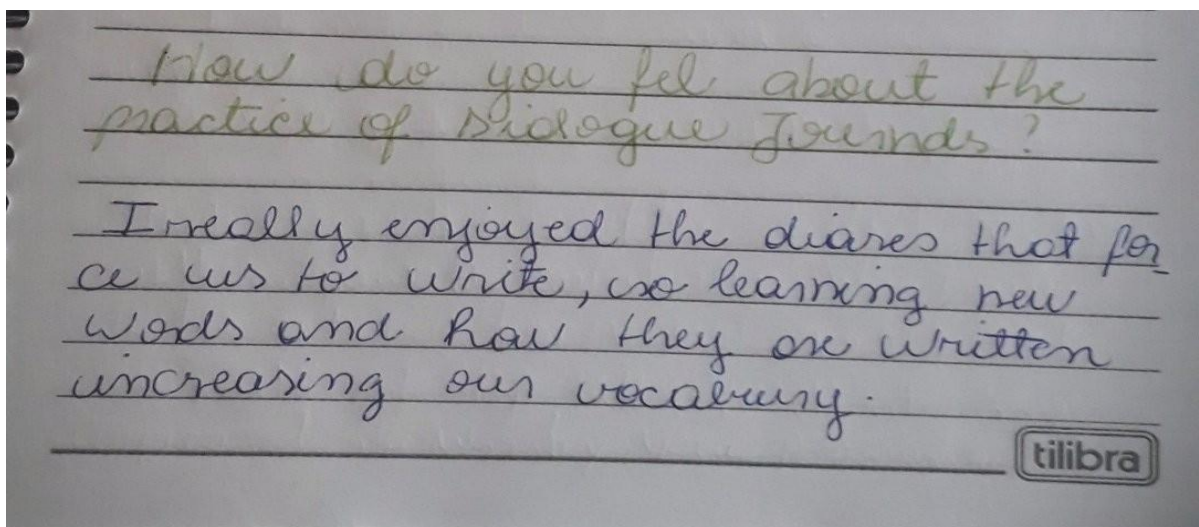 How do you fel about the
practice of Dialogue Jounds?
I really enjoyed the diares that for
ce us to write, so learning new
words and how they are written
increasing our vocabruny.
tilibra